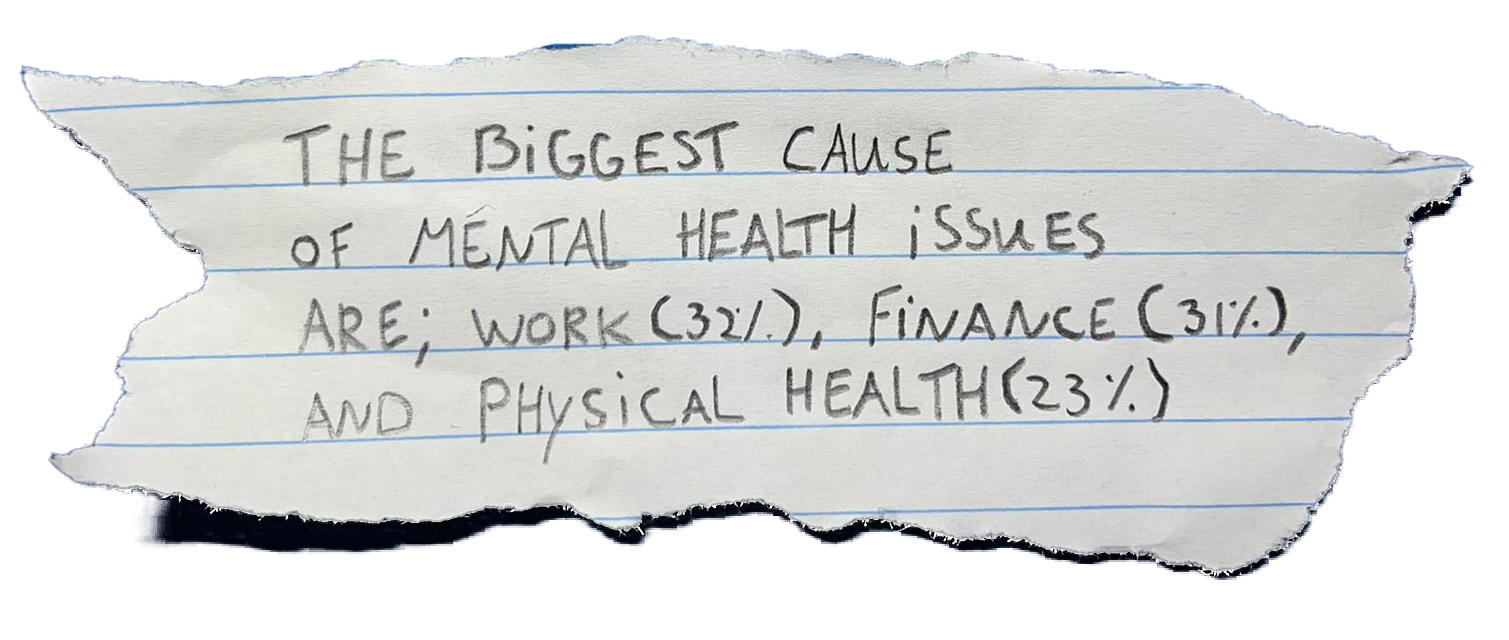 THE BiGGEST CAUSE
OF MENTAL HEALTH iSSUES
ARE; WORK (32%), FiNANCE (31%),
AND PHYSiCAL HEALTH (23%)